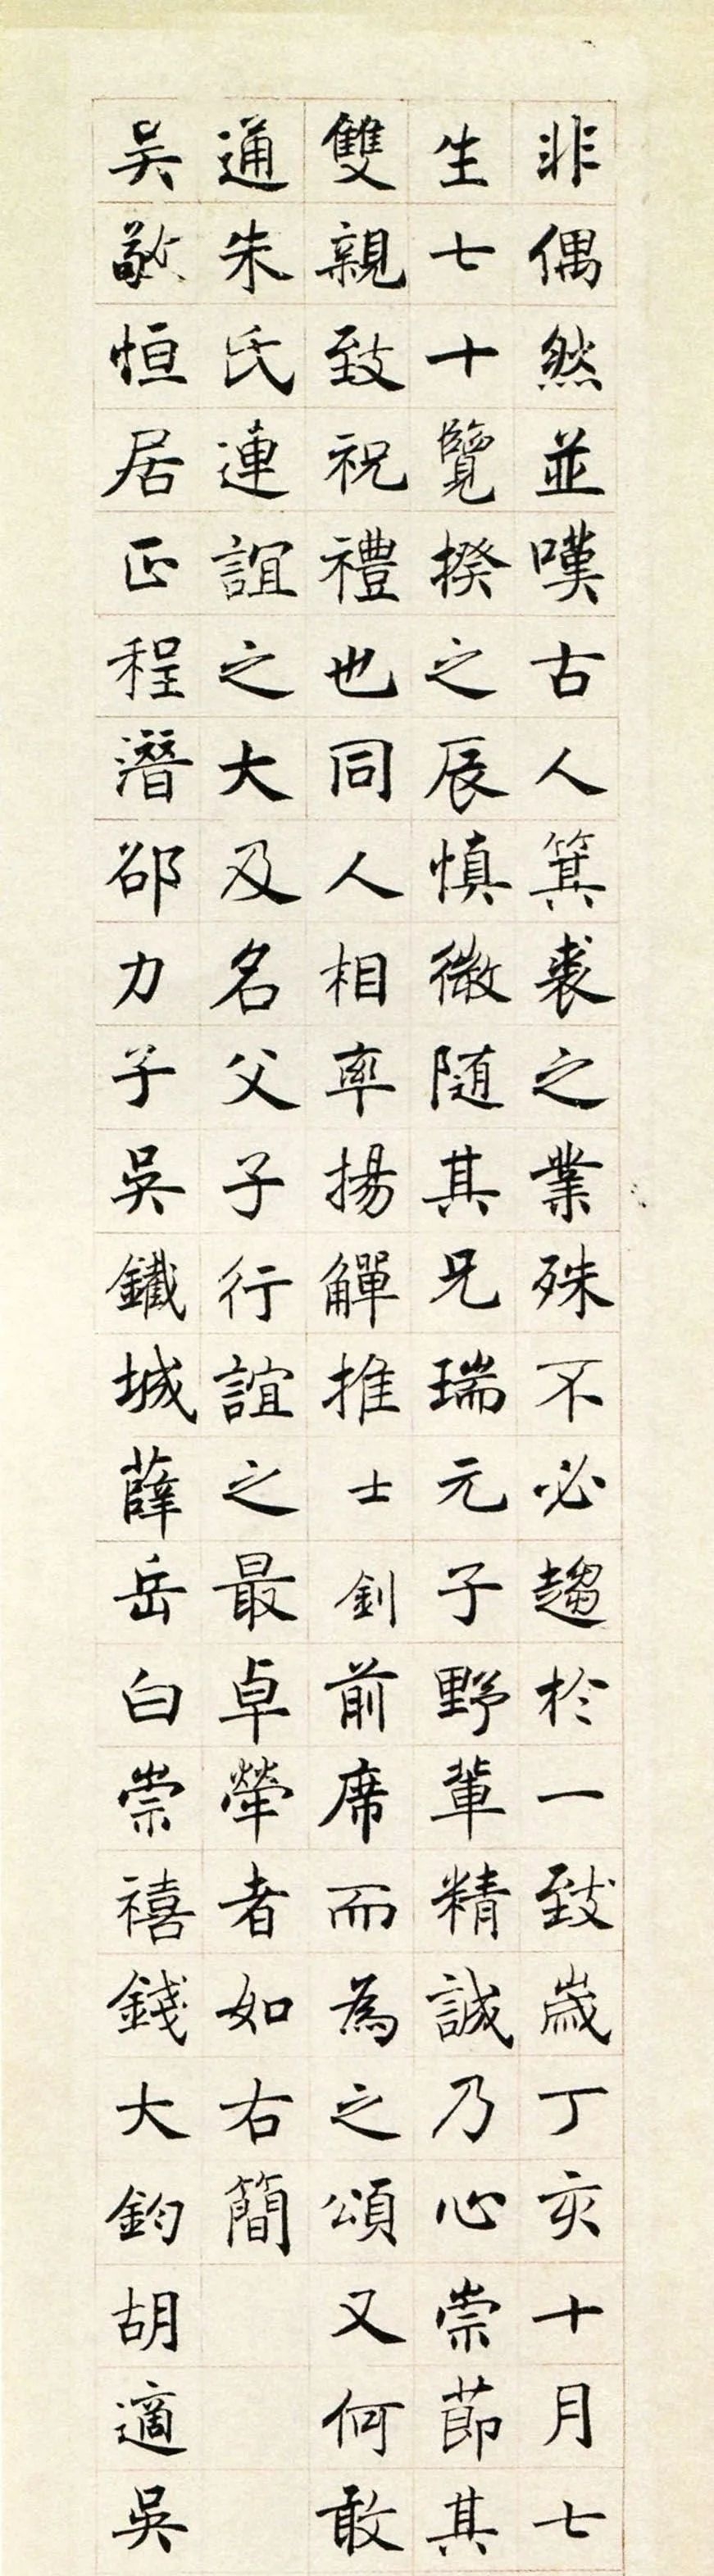 非偶然並嘆古人箕裘之業殊不必趨於一致歲丁亥十月七
生七十覽揆之辰慎微隨其兄瑞元子野輩精誠乃心崇節其
雙親致祝禮也同人相率揚觶推士釗前席而為之頌又何敢
通朱氏連誼之大及名父子行誼之最卓犖者如右簡
吴敬恒居正程潛邵力子吳鐵城薛岳白崇禧錢大鈞胡適吳